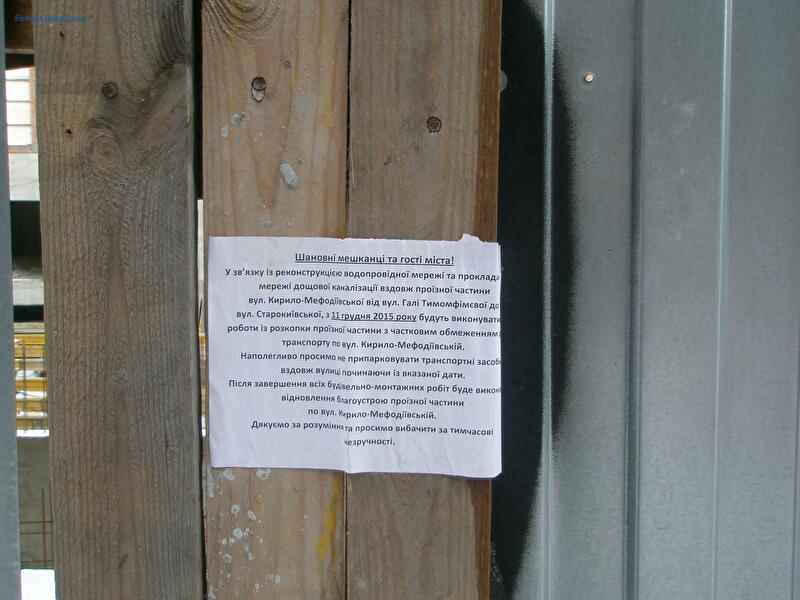 Шановні мешканці та гості міста!
У зв'язку із реконструкцією водопровідної мережі та проклада
мережі дощової каналізації вздовж проїзної частини
вул. Кирило-Мефодіївської від вул. Галі Тимофімєвої до
вул. Старокиївської, з 11 грудня 2015 року будуть виконувати
роботи із розкопки проїзної частини з частковим обмеженням
транспорту по вул. Кирило-Мефодіївській.
Наполегливо просимо не припарковувати транспортні засоб
вздовж вулиці починаючи із вказаної дати.
Після завершення всіх будівельно-монтажних робіт буде викон
відновлення благоустрою проїзної частини
по вул. Кирило-Мефодіївській.
Дякуємо за розуміння та просимо вибачити за тимчасові
незручності.